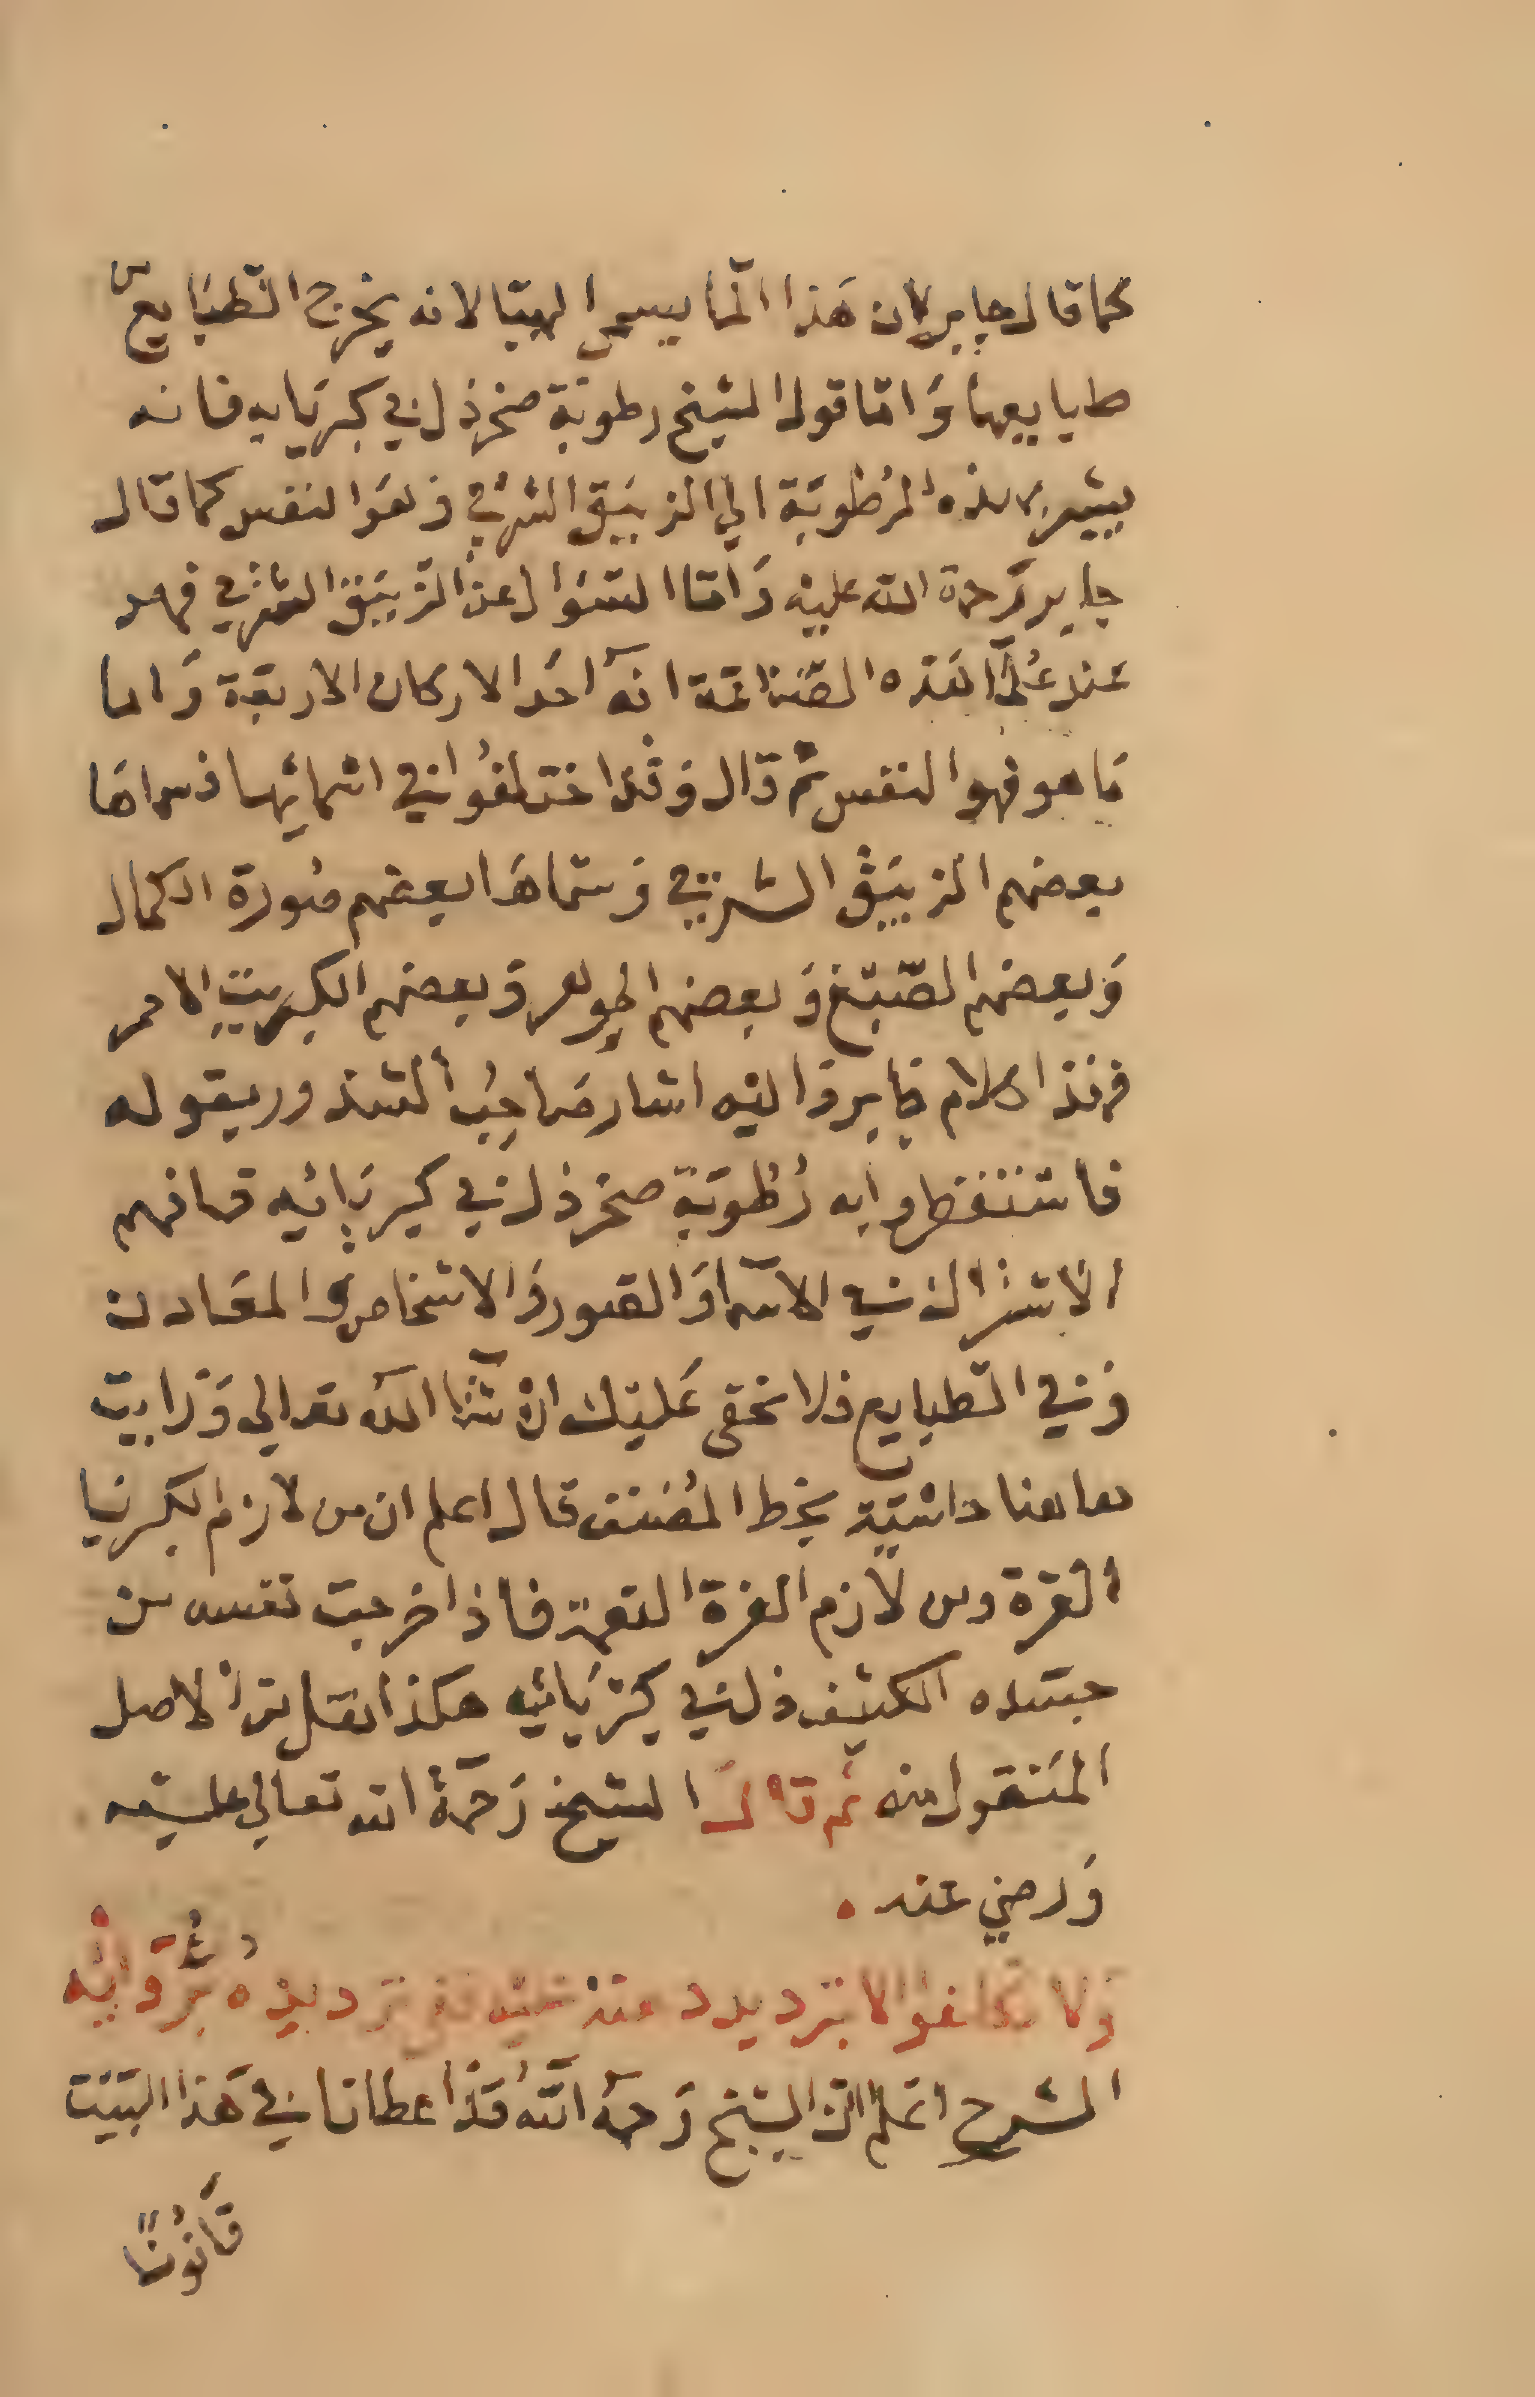 كما قال جابر لان هذا الما يسمى الهيا لانه يخرج الطبايع من
طبايعها وَامّا قول الشيخ رطوبة صخر ذل في كبريايه فانه
يشير بهذه الرُطوبَة الي الزيبَق الشرقي وَهوَ النفس كما قال
جابر رَحمة الله عليه وَامّا السؤال عن الزيبَق الشرقي فهو
عند عُلمآ هَذه الصّناعَة انه آحَد الاركان الاربعَة وَاما
مَا هو فهو النفس ثم قال وَقد اختلفُوا في اسمائها فسماهَا
بعضهم الزيبَق الشرقي وَسَماهَا بعضهم صُورة الكمال
وَبعضهم الصّبغ وَبعضهم الجوهر وَبعضهم الكبريت الاحمر
فهذا كلام جَابر وَاليه اشار صَاحِبُ الشذور بقوله
فاستقطروابه رُطوبَة صخر ذل في كبريَائيه فافهم
الاشتراك في الاسمآ وَالصور وَالاشخاص وَالمعَادن
وَفي الطبايع فلا يخفى عَليك انْ شا الله تعالي وَرَايت
هاهنا حاشيَة بخط المصُنف قال اعلم ان من لازم الكبريَا
العزة ومن لازم العزة النعمة فاذا خرجت نفسه من
جسَده الكثيف ذل في كبرِيَائيه هكذا نقل من الاصل
المَنقول منه ثم قالَ الشيخ رَحمَة الله تعالي عليه
وَرضي عنه .
وَلا تكلفوا الا بترديد فقى ترديدِه بُرُو دَائِه
الشرح اعَلم ان الشيخ رَحمهُ اللهُ قَد اعطانا في هَذا البَيت
قَانُونًا